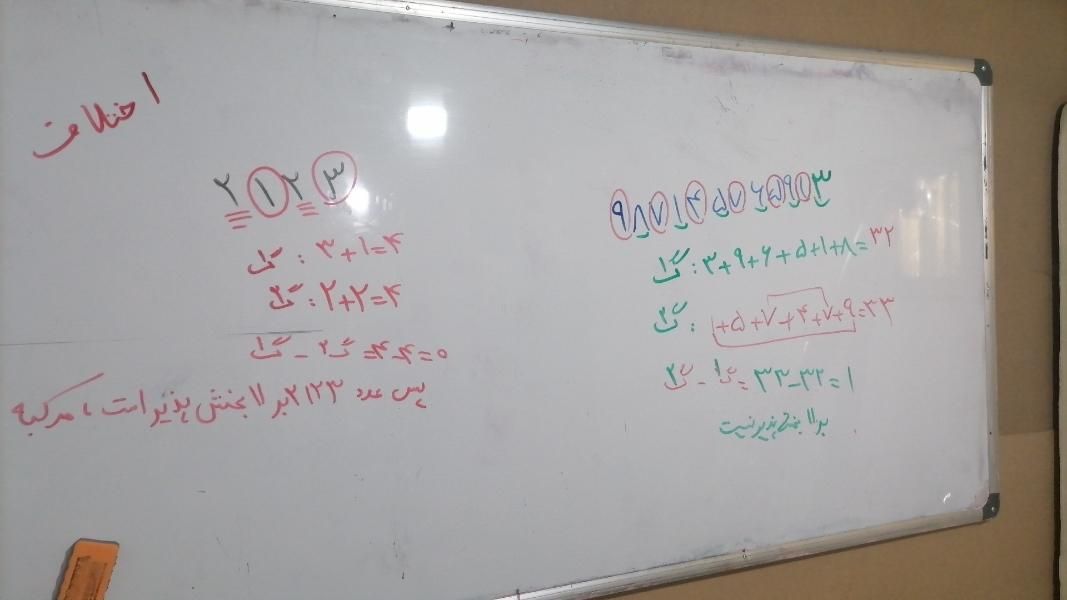 اختلاف
۹۸۷۱۴۵۷۶۵۹۱۳
گ۱: ۳+۹+۶+۵+۱+۸=۳۲
گ۲: ۱+۵+۷+۴+۷+۹=۳۳
گ۲ - گ۱ = ۳۳-۳۲=۱
بر ۱۱ بخش پذیر نیست
۲۱۲۳
گ۱: ۳+۱=۴
گ۲: ۲+۲=۴
گ۱ - گ۲ = ۴-۴=۰
پس عدد ۲۱۲۳ بر ۱۱ بخش پذیر است، مرکبه